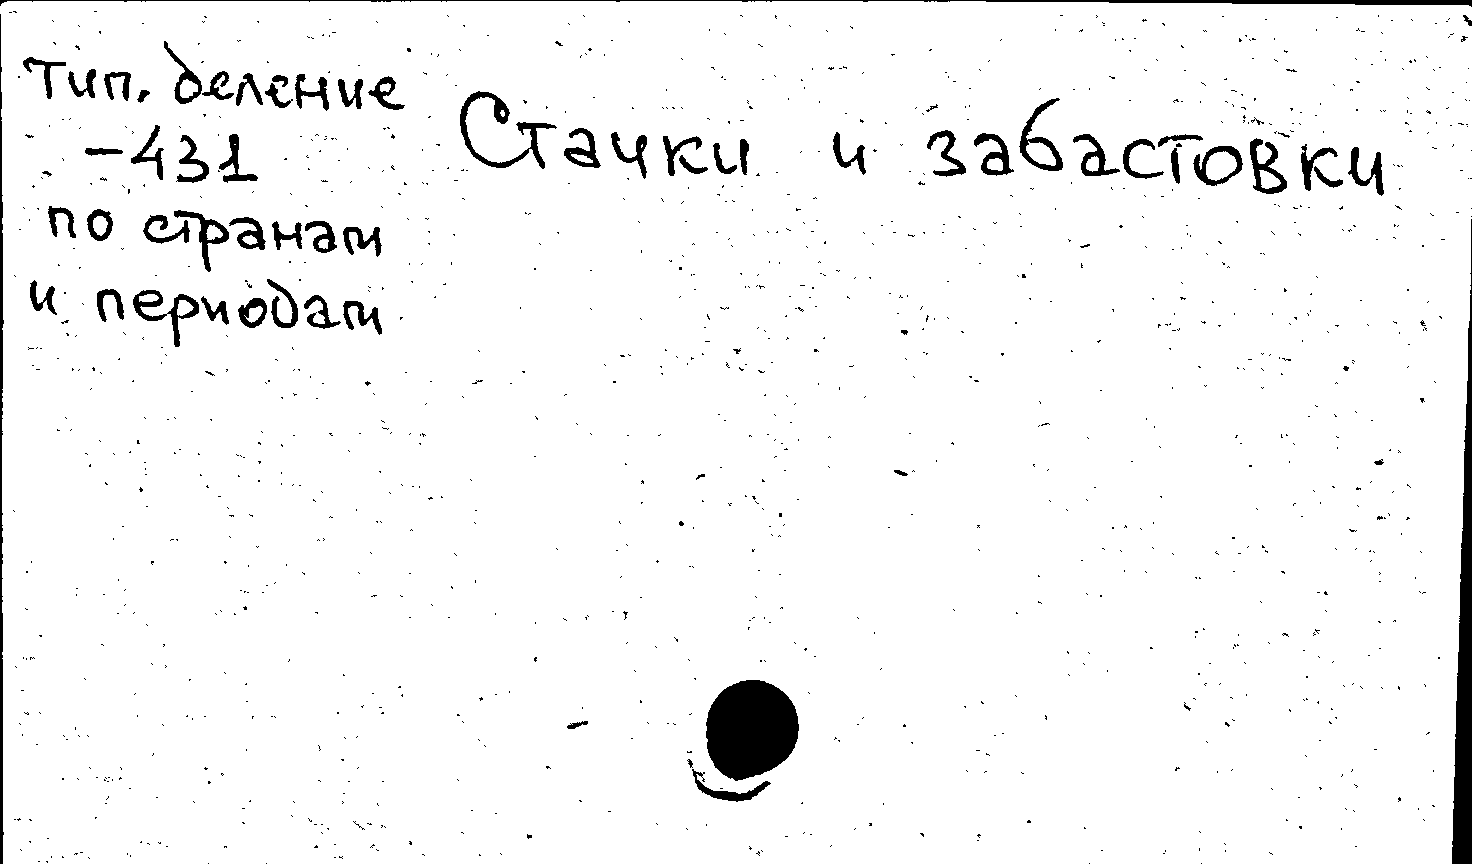 Тип. деление
-431
по странам
и периодам
Стачки и забастовки